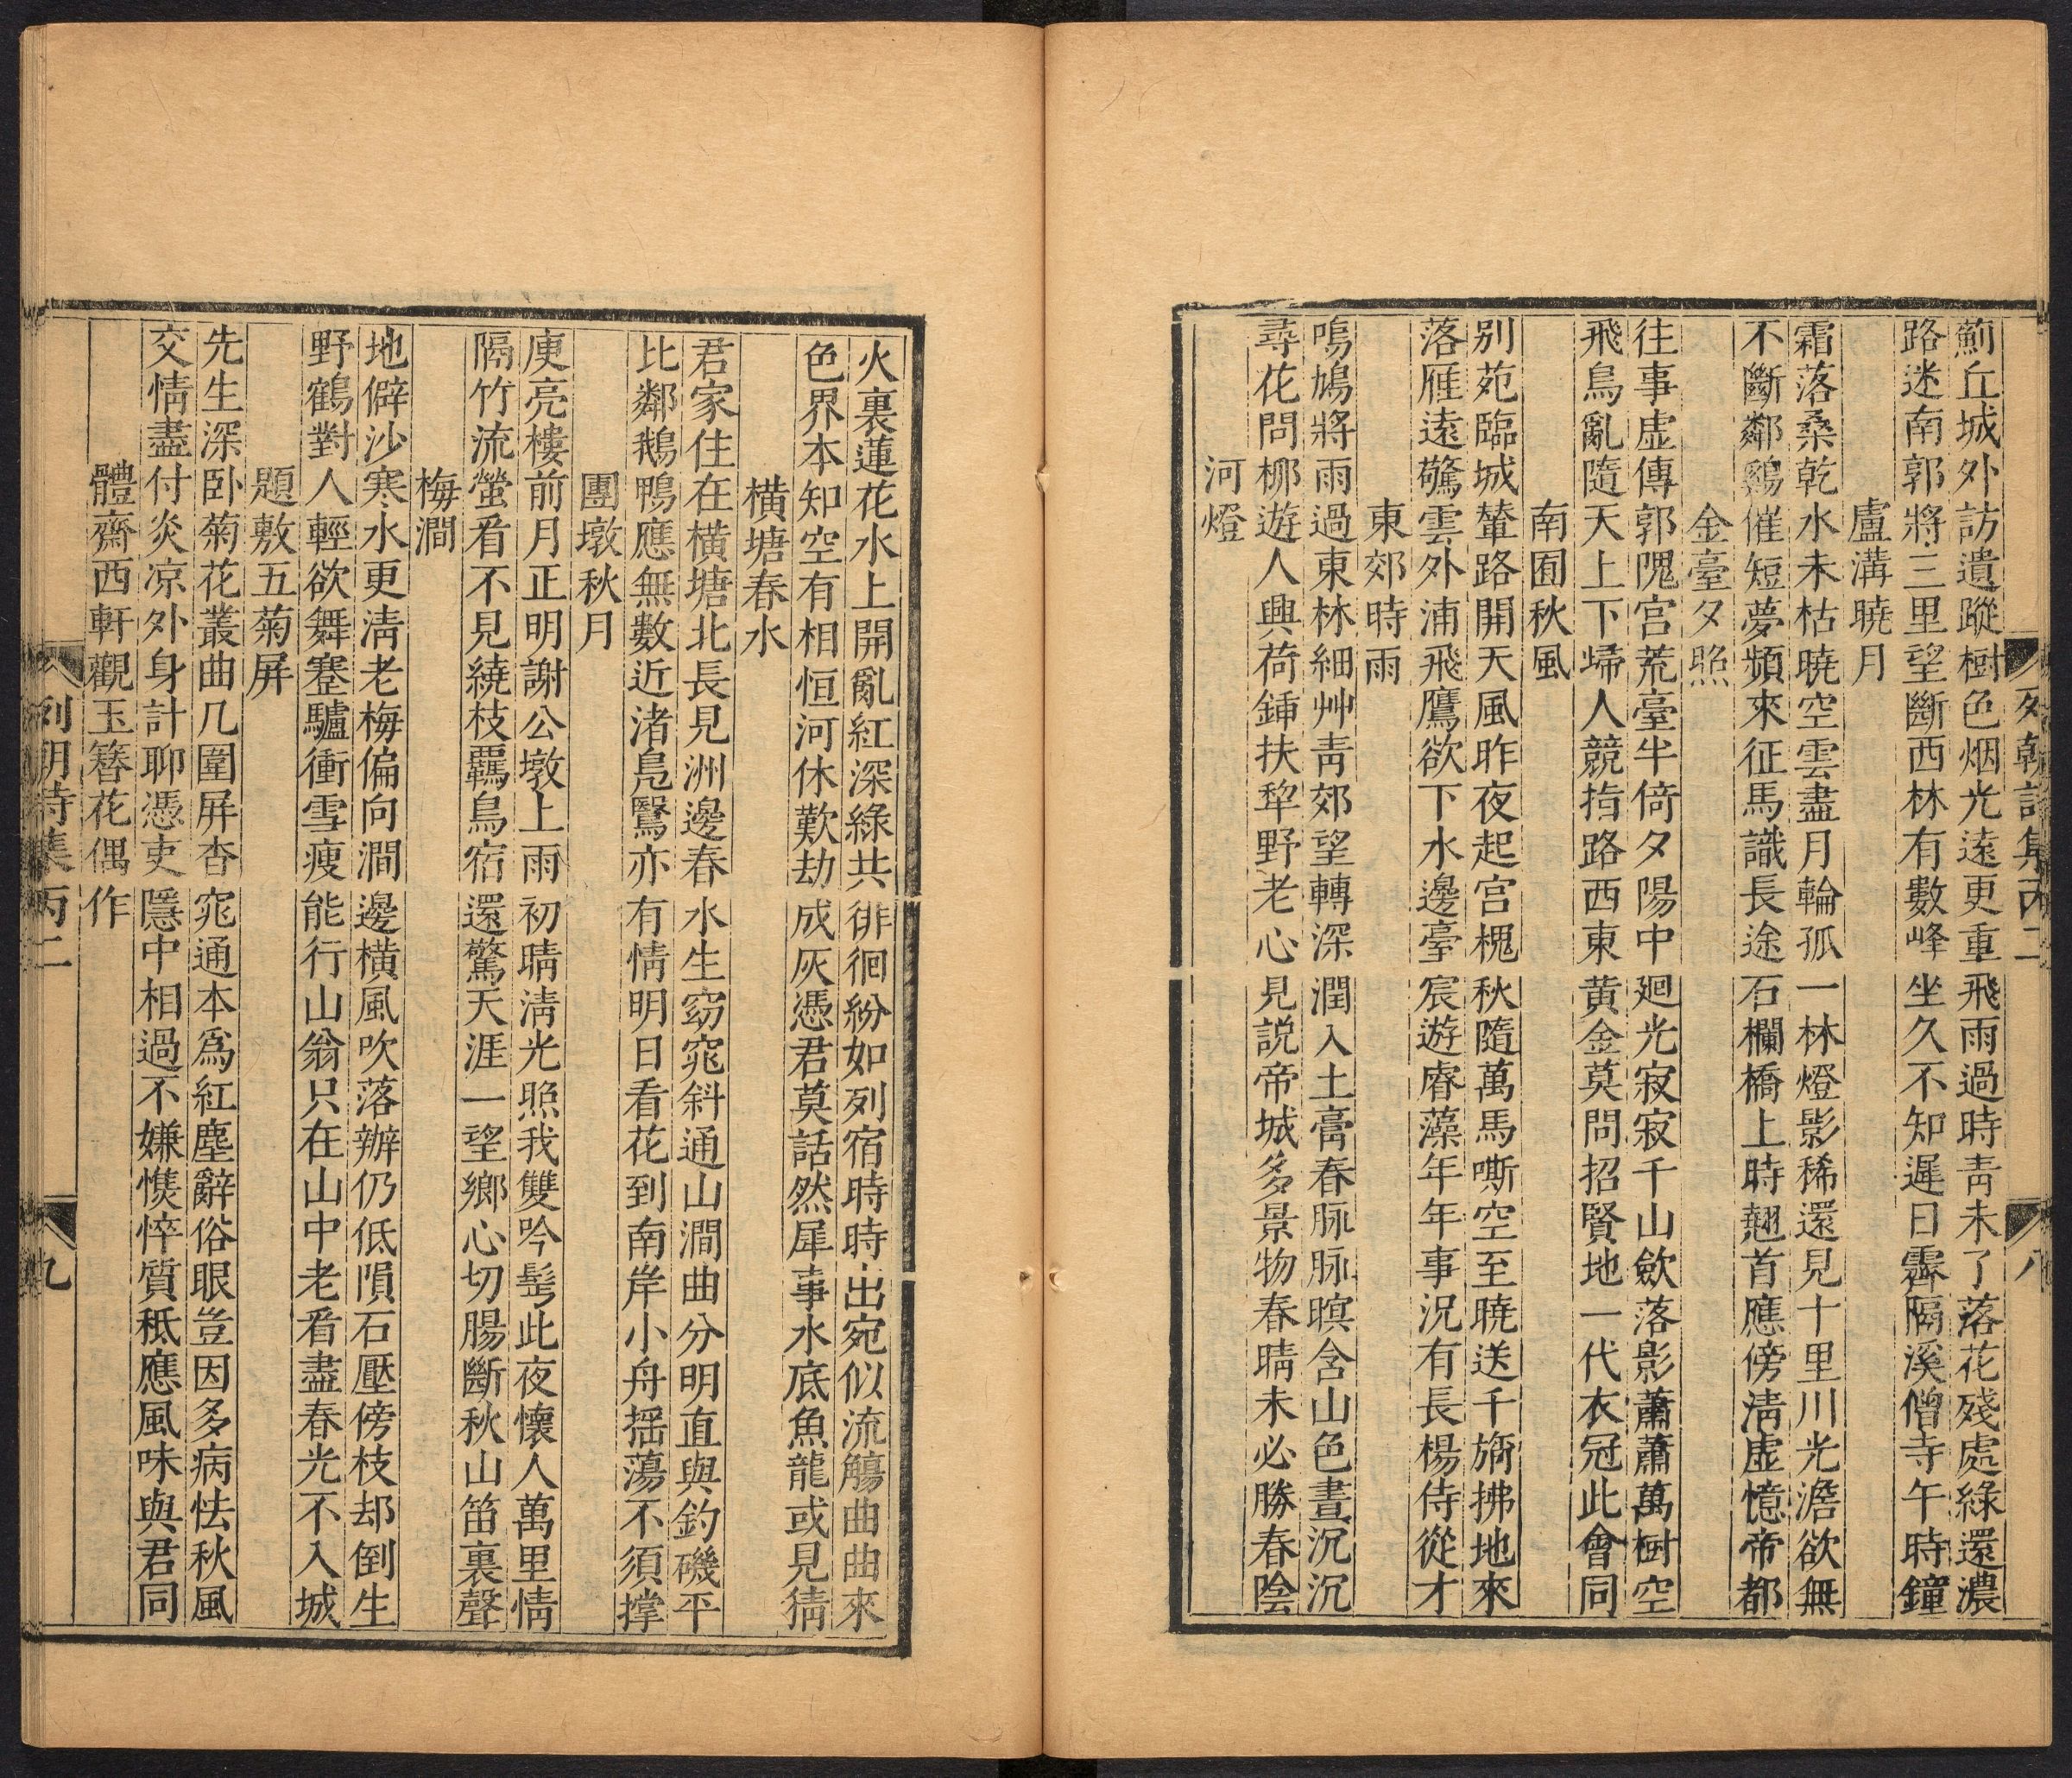 薊丘城外訪遺蹤樹色烟光遠更重飛雨過時靑未了落花殘處綠還濃
路迷南郭將三里望斷西林有數峰坐久不知遲日霽隔溪僧寺午時鐘
盧溝曉月
霜落桑乾水未枯曉空雲盡月輪孤一林燈影稀還見十里川光澹欲無
不斷鄰鷄催短夢頻來征馬識長途石欄橋上時翹首應傍淸虛憶帝都
金臺夕照
往事虛傳郭隗宫荒臺半倚夕陽中廻光寂寂千山歛落影蕭蕭萬樹空
飛鳥亂隨天上下歸人競指路西東黄金莫問招賢地一代衣冠此會同
南囿秋風
别苑臨城輦路開天風昨夜起宫槐秋隨萬馬嘶空至曉送千旓拂地來
落雁遠驚雲外浦飛鷹欲下水邊臺宸遊睿藻年年事況有長楊侍從才
東郊時雨
鳴鳩將雨過東林細艸靑郊望轉深潤入土膏春脉脉暝含山色晝沉沉
尋花問栁遊人興荷鍤扶犂野老心見説帝城多景物春晴未必勝春陰
河燈
列朝詩集丙二
八
火裏蓮花水上開亂紅深綠共徘徊紛如列宿時時出宛似流觴曲曲來
色界本知空有相恒河休歎劫成灰憑君莫話然犀事水底魚龍或見猜
横塘春水
君家住在横塘北長見洲邊春水生窈窕斜通山澗曲分明直與釣磯平
比鄰鵝鴨應無數近渚鳧鷖亦有情明日看花到南岸小舟摇蕩不須撑
團墩秋月
庾亮樓前月正明謝公墩上雨初晴淸光照我雙吟髩此夜懷人萬里情
隔竹流螢看不見繞枝羈鳥宿還驚天涯一望鄉心切腸斷秋山笛裏聲
梅澗
地僻沙寒水更淸老梅偏向澗邊横風吹落瓣仍低隕石壓傍枝却倒生
野鶴對人輕欲舞蹇驢衝雪瘦能行山翁只在山中老看盡春光不入城
題敷五菊屏
先生深卧菊花叢曲几圍屏杳窕通本爲紅塵辭俗眼豈因多病怯秋風
交情盡付炎凉外身計聊憑吏隱中相過不嫌憔悴質秪應風味與君同
體齋西軒觀玉簪花偶作
列朝詩集丙二
九